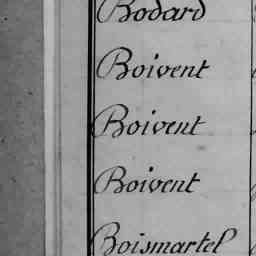 Bodard
Boivent
Boivent
Boivent
Boismartel